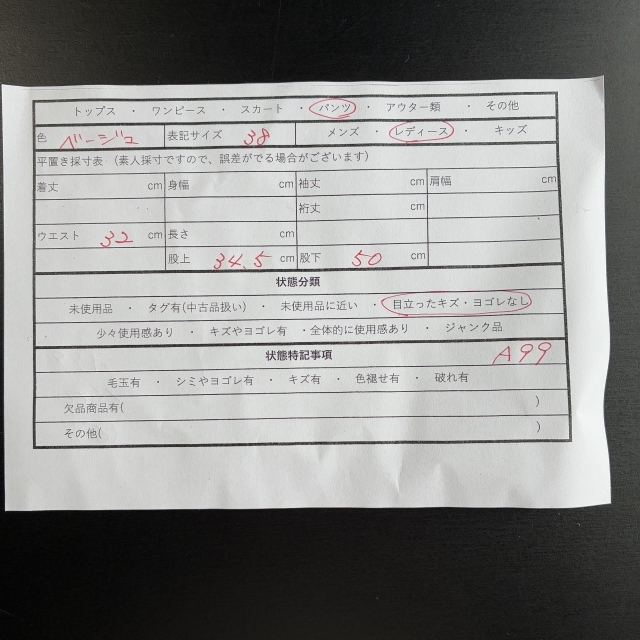 トップス ・ ワンピース ・ スカート ・ パンツ ・ アウター類 ・ その他
色 ベージュ 表記サイズ 38 メンズ ・ レディース ・ キッズ
平置き採寸表 (素人採寸ですので、誤差がでる場合がございます)
着丈 cm 身幅 cm 袖丈 cm 肩幅 cm
裄丈 cm
ウエスト 32 cm 長さ cm
股上 34.5 cm 股下 50 cm
状態分類
未使用品 ・ タグ有(中古品扱い) ・ 未使用品に近い ・ 目立ったキズ・ヨゴレなし
少々使用感あり ・ キズやヨゴレ有 ・全体的に使用感あり ・ ジャンク品
状態特記事項 A99
毛玉有 ・ シミやヨゴレ有 ・ キズ有 ・ 色褪せ有 ・ 破れ有
欠品商品有( )
その他( )